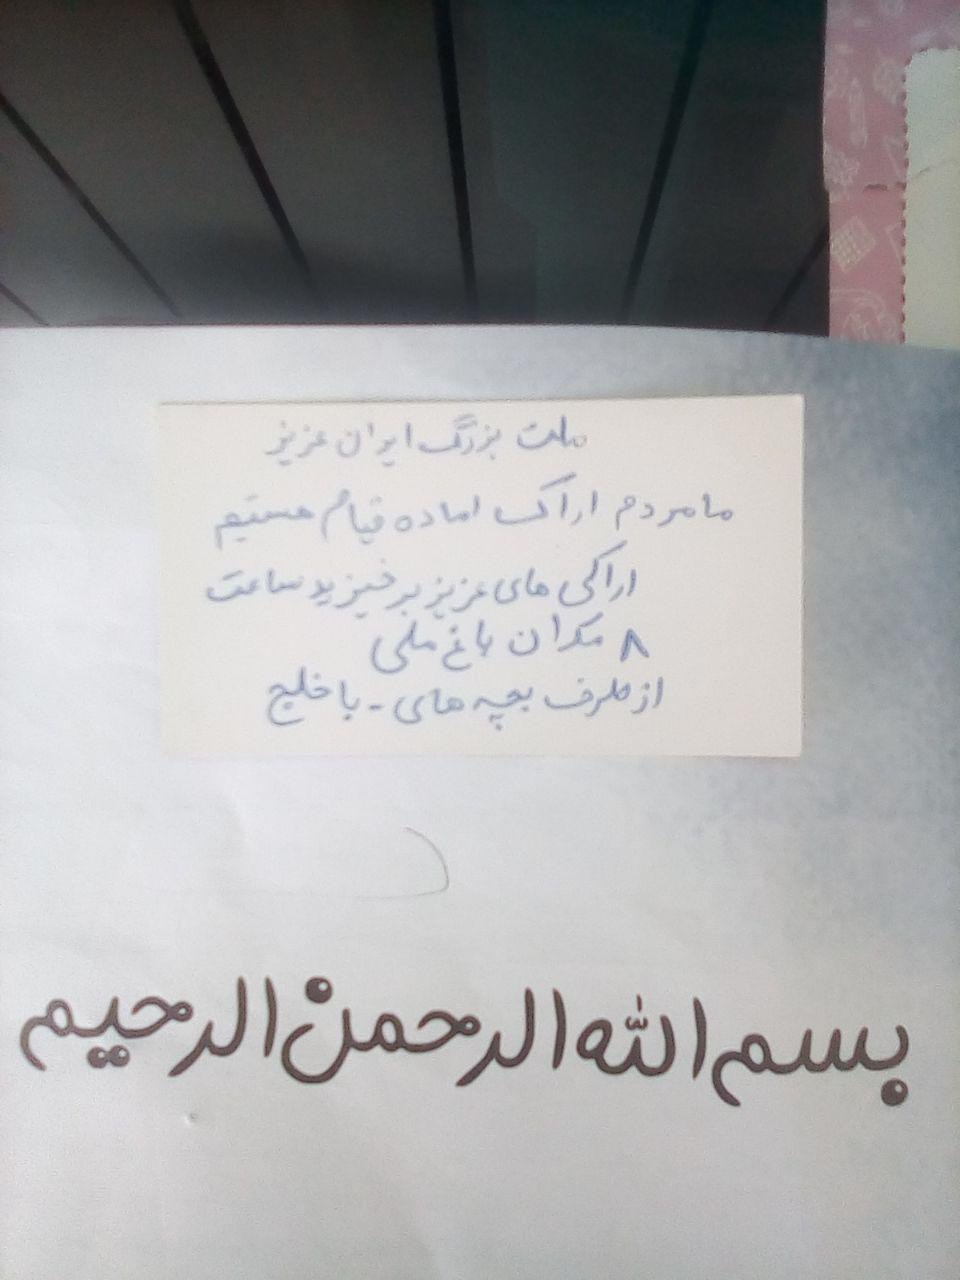 ملت بزرگ ایران عزیز
ما مردم اراک اماده قیام هستیم
اراکی های عزیز برخیزید ساعت
۸ مکان باغ ملی
از طرف بچه های - با خلیج
بسم الله الرحمن الرحیم